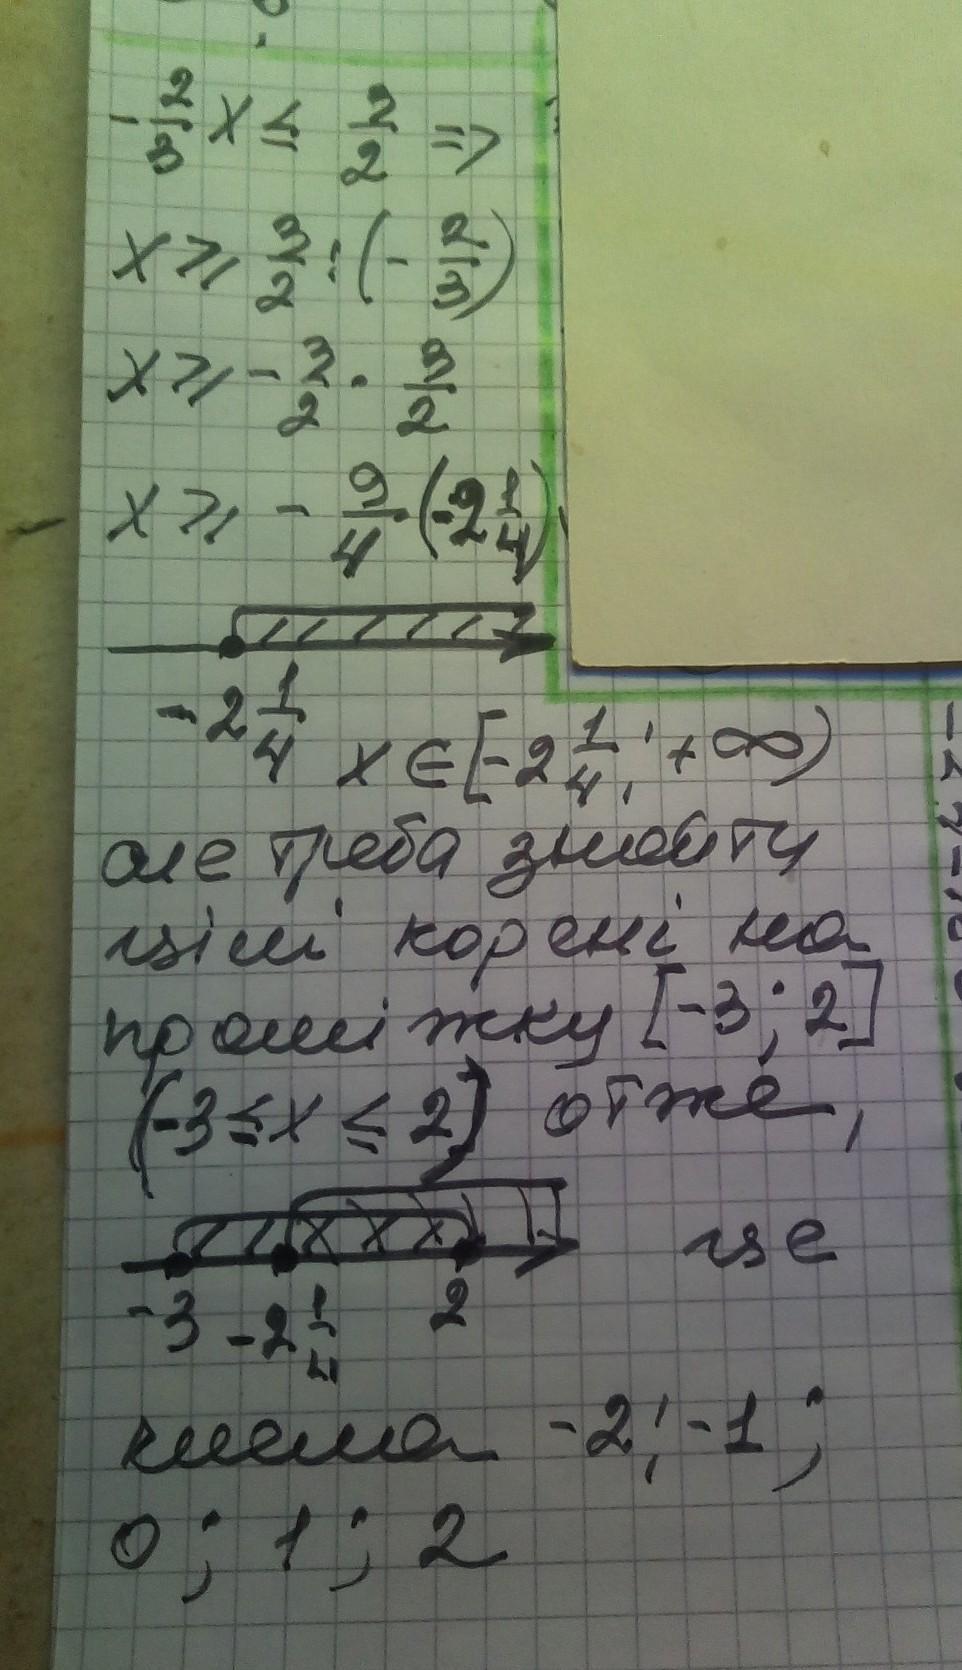 -2/3 x ≤ 3/2 =>
x ≥ 3/2 : (- 2/3)
x ≥ - 3/2 · 3/2
x ≥ - 9/4 (-2 1/4)
-2 1/4
x ∈ [-2 1/4; +∞)
але треба знайти
цілі корені на
проміжку [-3; 2]
(-3 ≤ x ≤ 2) отже,
-3 -2 1/4 2 це
числа -2; -1;
0; 1; 2